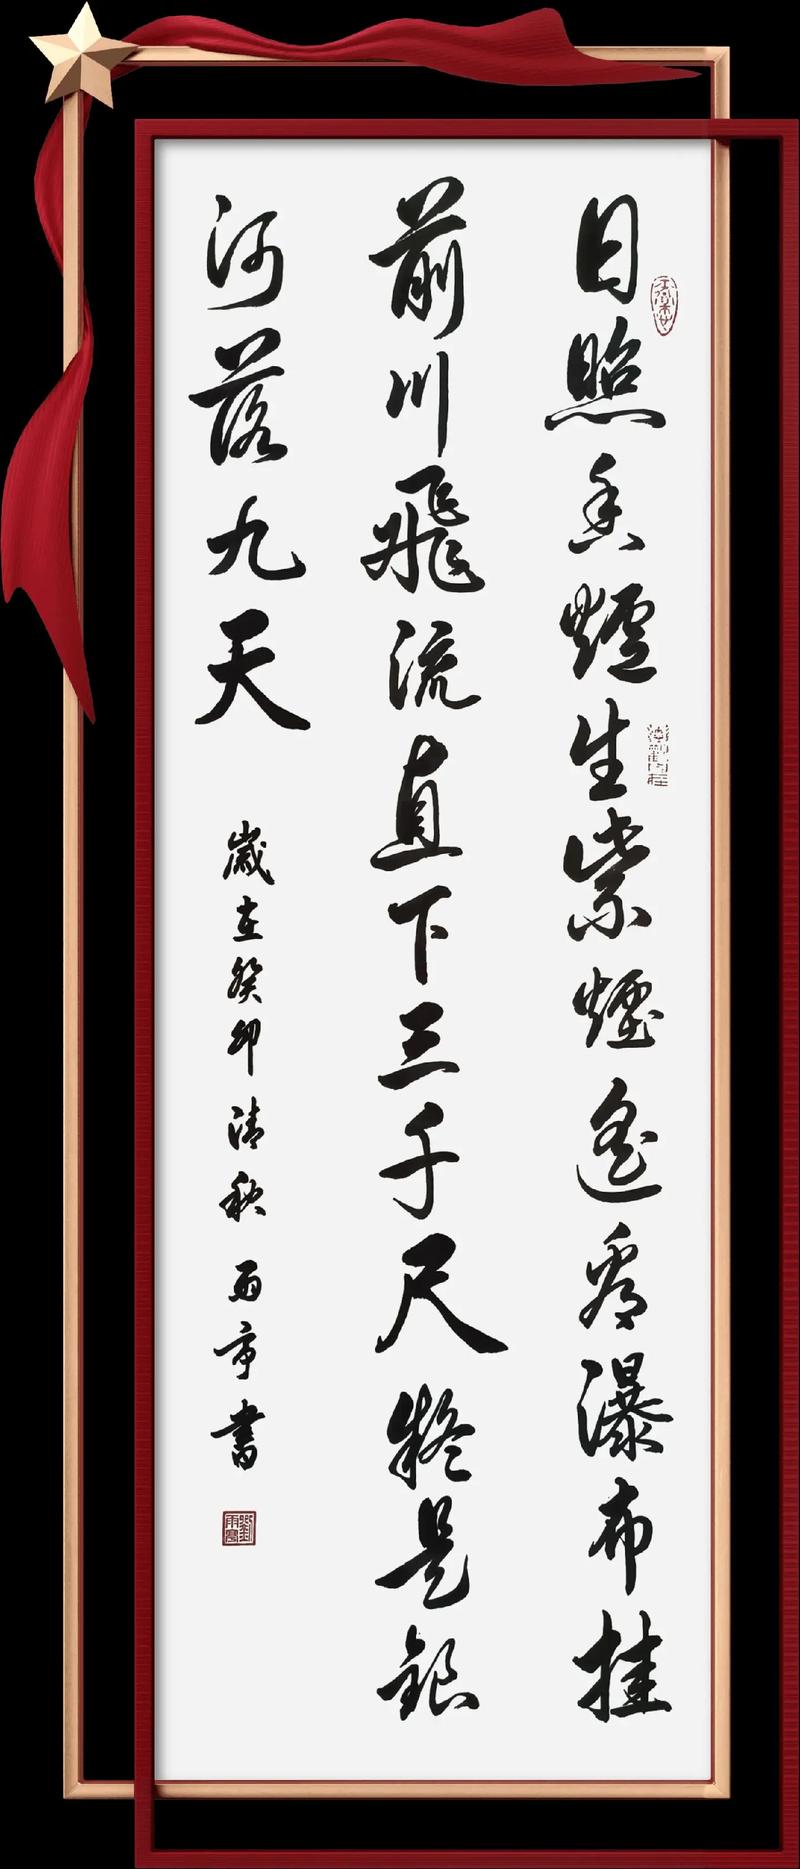 日照香爐生紫煙遙看瀑布挂
前川飛流直下三千尺疑是銀
河落九天
歲在癸卯清秋雨亭書